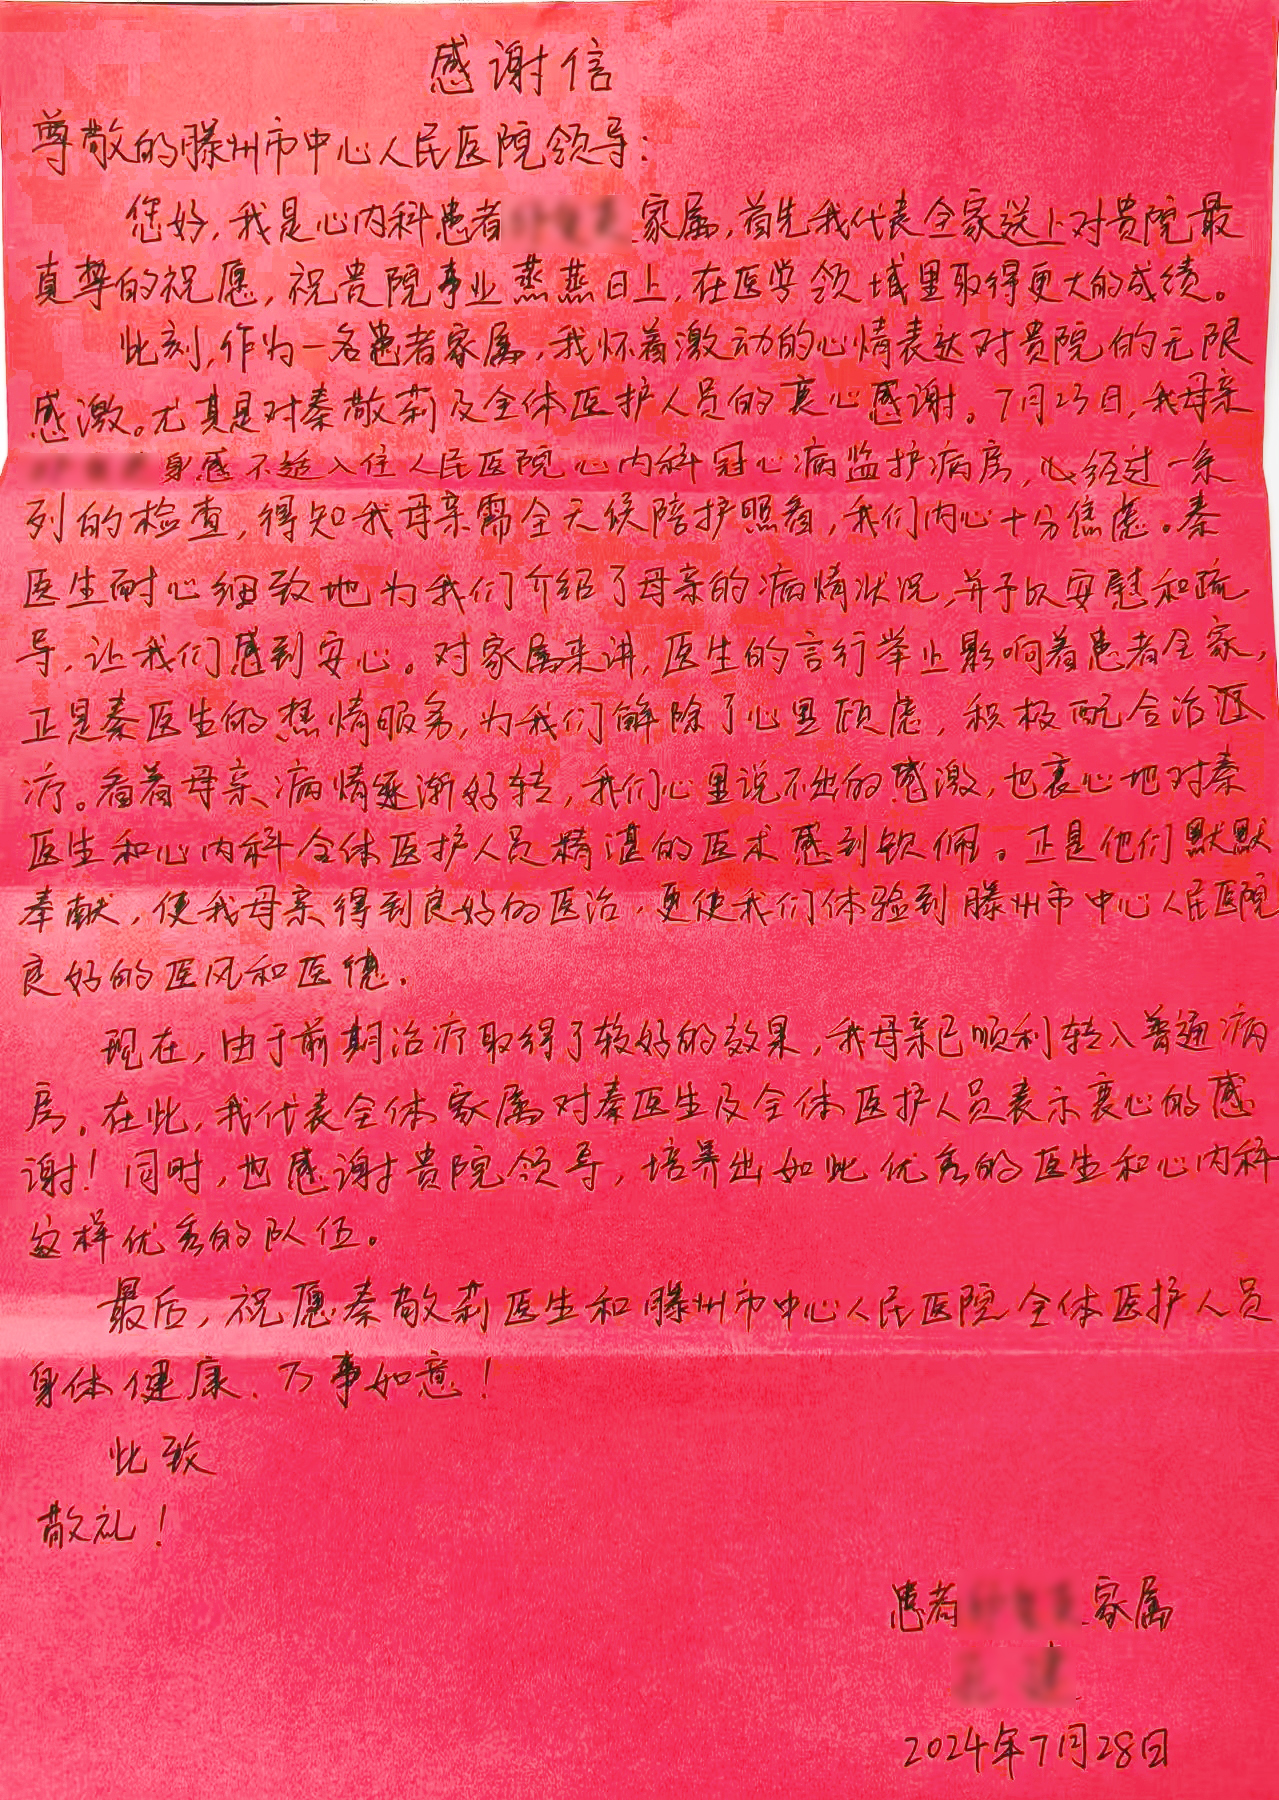 感谢信
尊敬的滕州市中心人民医院领导：
您好，我是心内科患者 家属，首先我代表全家送上对贵院最
真挚的祝愿，祝贵院事业蒸蒸日上，在医学领域里取得更大的成绩。
此刻，作为一名患者家属，我怀着激动的心情表达对贵院的无限
感激。尤其是对秦敬莉及全体医护人员的衷心感谢。7月23日，我母亲
身感不适入住人民医院心内科冠心病监护病房，经过一系
列的检查，得知我母亲需全天候陪护照看，我们内心十分焦虑。秦
医生耐心细致地为我们介绍了母亲的病情状况，并予以安慰和疏
导，让我们感到安心。对家属来讲，医生的言行举止影响着患者全家，
正是秦医生的热情服务，为我们解除了心里顾虑，积极配合治医
疗。看着母亲病情逐渐好转，我们心里说不出的感激，也衷心地对秦
医生和心内科全体医护人员精湛的医术感到钦佩。正是他们默默
奉献，使我母亲得到良好的医治，更使我们体验到滕州市中心人民医院
良好的医风和医德。
现在，由于前期治疗取得了较好的效果，我母亲已顺利转入普通病
房。在此，我代表全体家属对秦医生及全体医护人员表示衷心的感
谢！同时，也感谢贵院领导，培养出如此优秀的医生和心内科
这样优秀的队伍。
最后，祝愿秦敬莉医生和滕州市中心人民医院全体医护人员
身体健康、万事如意！
此致
敬礼！
患者 家属
2024年7月28日